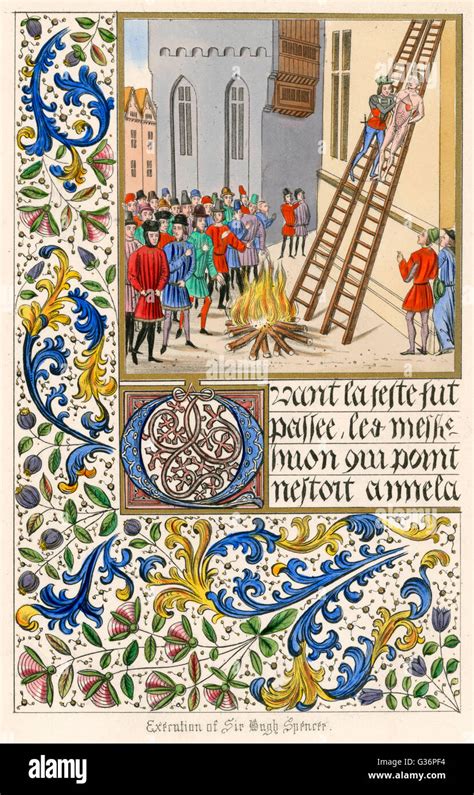 Quant la feste fut
passee, led messe
huon qui point
nestoit a nnela
Execution of Sir Hugh Spencer.
alamy
Image ID: G36PF4
www.alamy.com